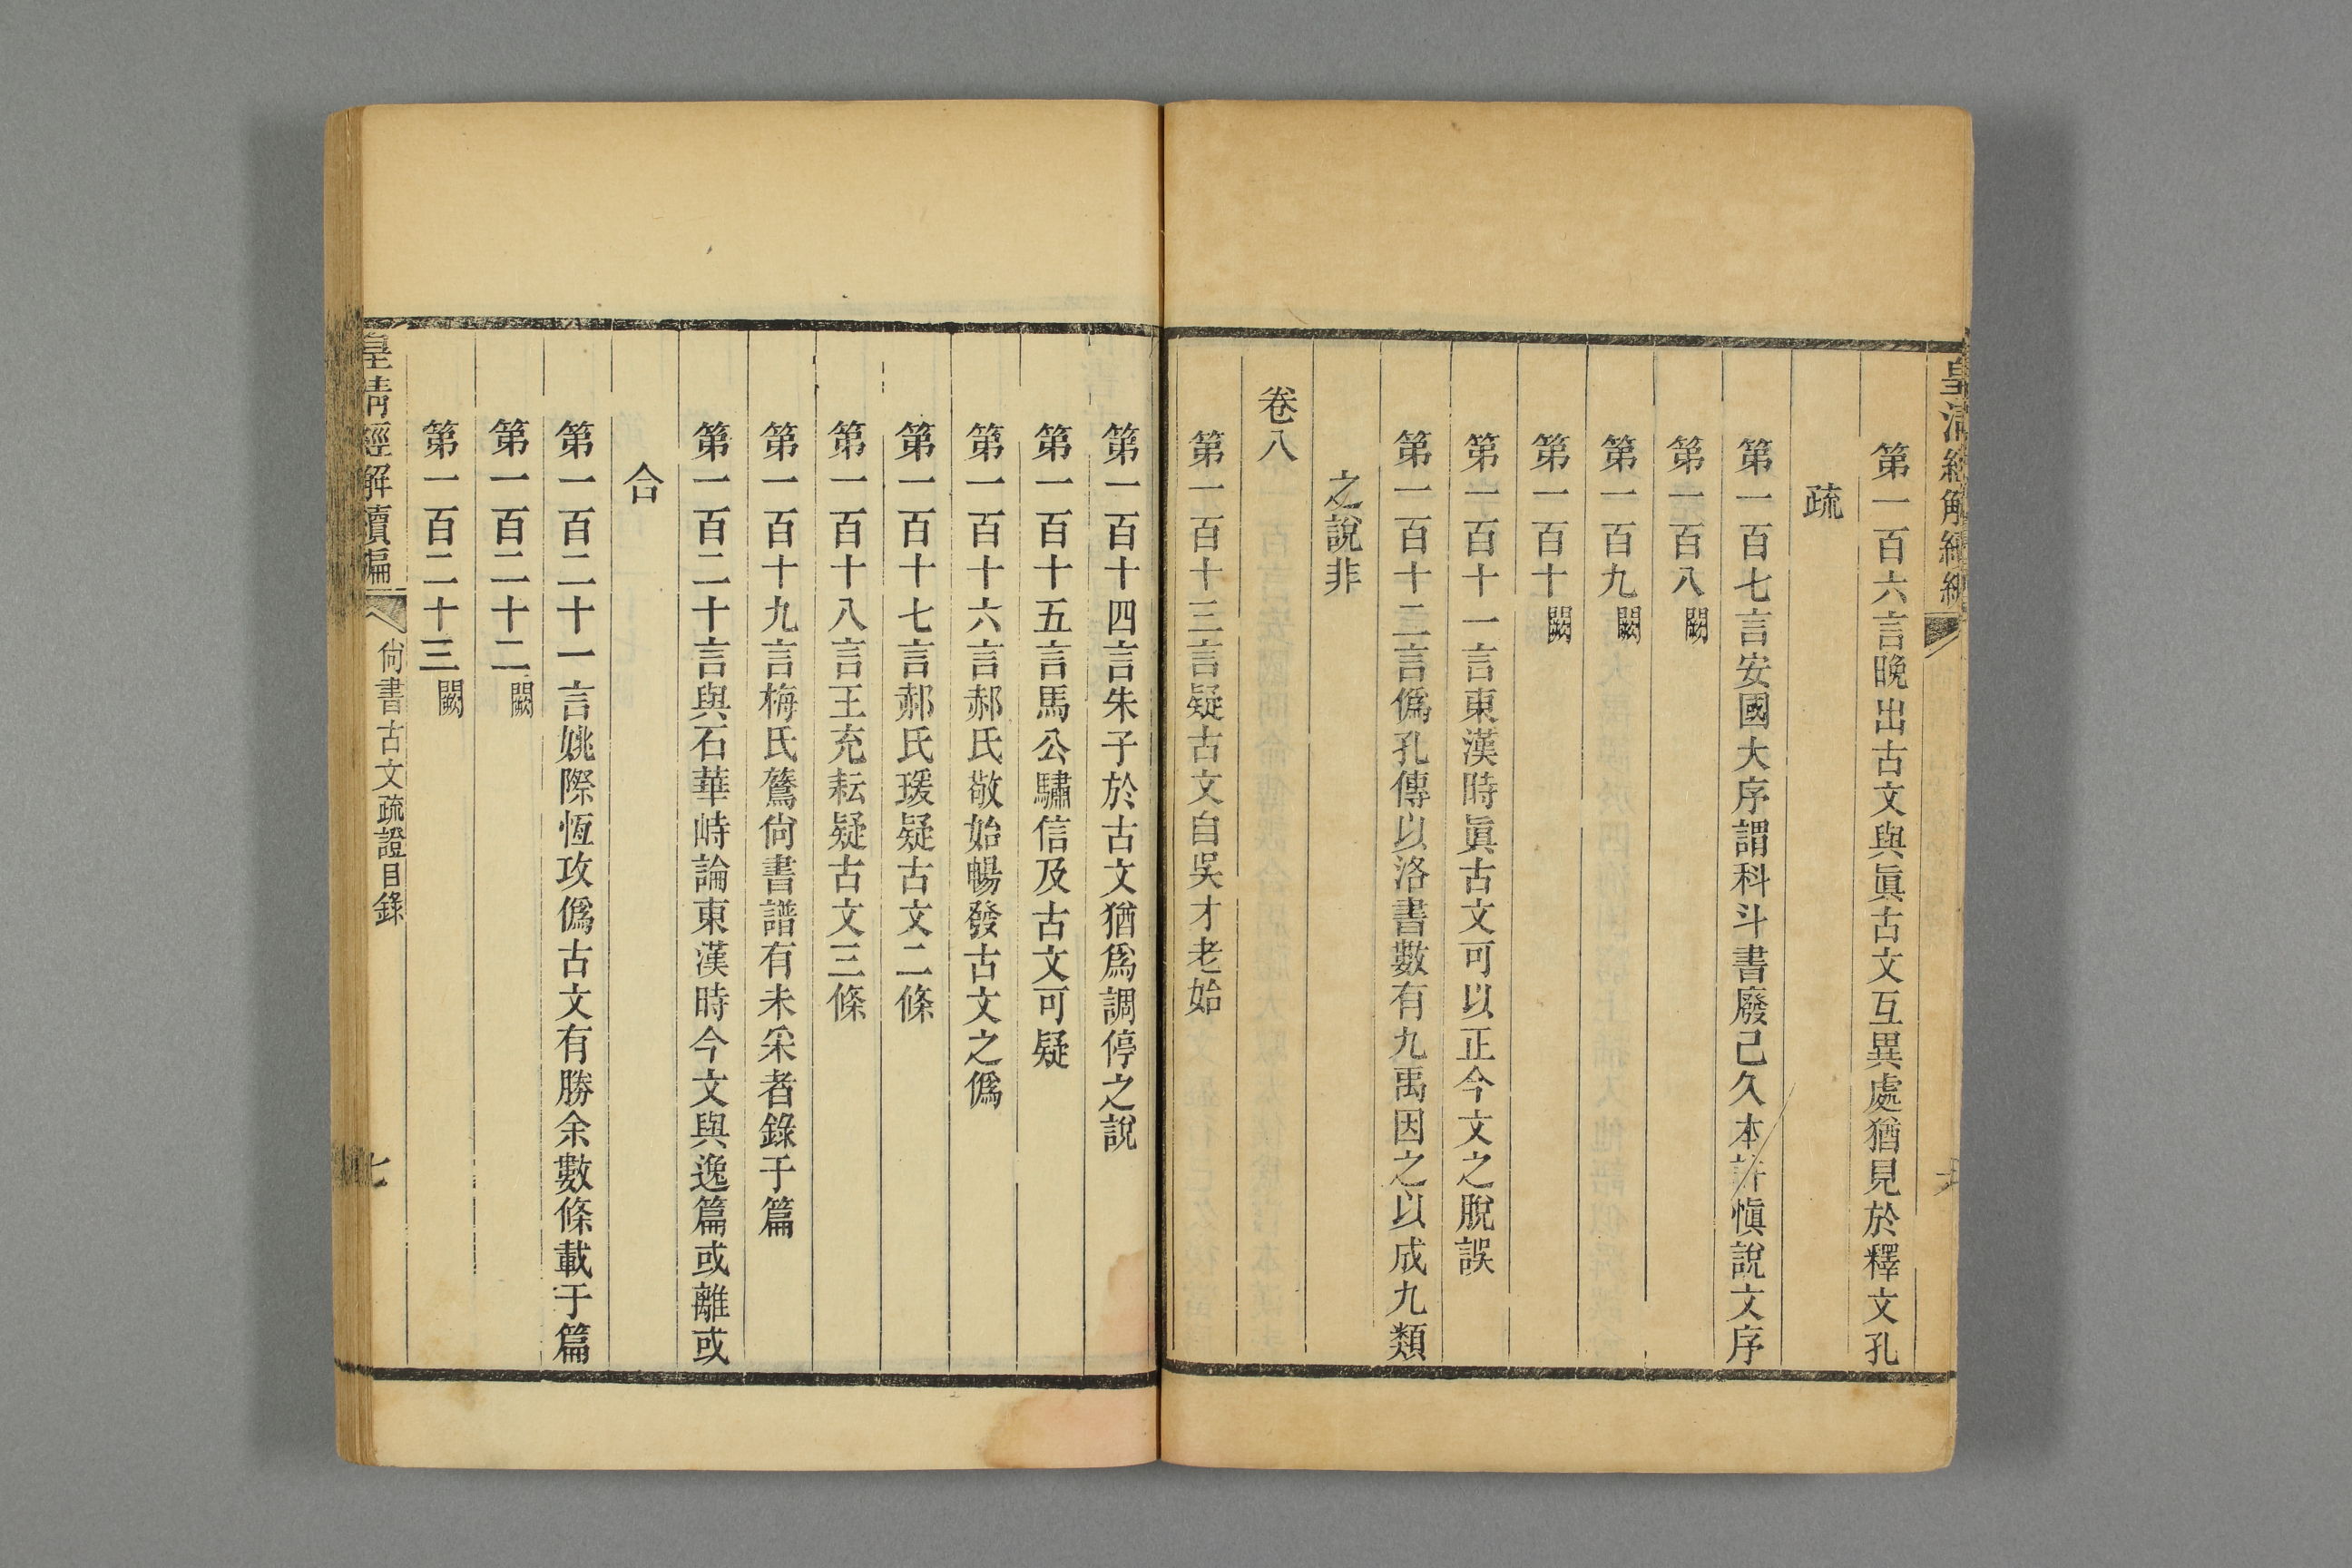 第一百六言晚出古文與眞古文互異處猶見於釋文孔
疏
第一百七言安國大序謂科斗書廢已久本許愼說文序
第一百八闕
第一百九闕
第一百十闕
第一百十一言東漢時眞古文可以正今文之脫誤
第一百十二言僞孔傳以洛書數有九禹因之以成九類
之說非
卷八
第一百十三言疑古文自吳才老始
第一百十四言朱子於古文猶爲調停之說
第一百十五言馬公驌信及古文可疑
第一百十六言郝氏敬始暢發古文之僞
第一百十七言郝氏瑗疑古文二條
第一百十八言王充耘疑古文三條
第一百十九言梅氏鷟尙書譜有未采者錄于篇
第一百二十言與石華峙論東漢時今文與逸篇或離或
合
第一百二十一言姚際恆攻僞古文有勝余數條載于篇
第一百二十二闕
第一百二十三闕
皇淸經解續編 尙書古文疏證目錄 七